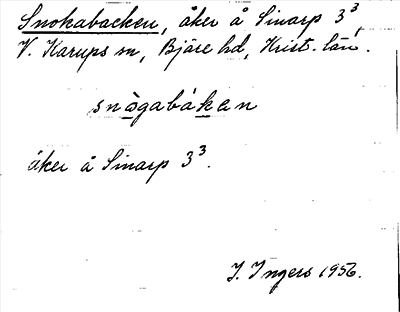 Snokabacken, åker å Sinarp 3³,
V. Karups sn, Bjäre hd, Krist. län.
snògabákan
åker å Sinarp 3³.
I. Ingers 1956.